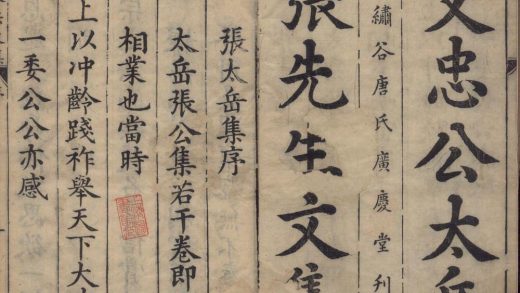 文忠公太岳
繡谷唐氏廣慶堂刊
張先生文集
張太岳集序
太岳張公集若干卷即
相業也當時
上以冲齡踐祚舉天下大
一委公公亦感